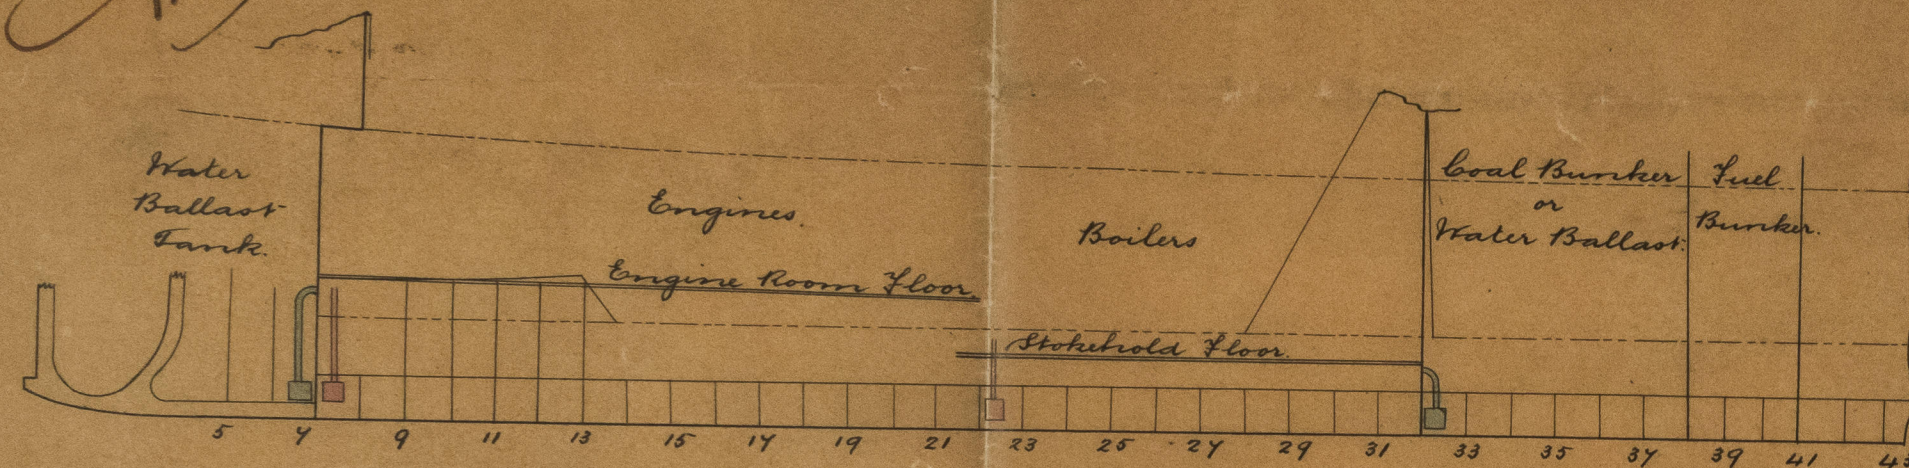 Water
Ballast
Tank.
Engines.
Engine Room Floor.
Boilers
Stokehold Floor.
Coal Bunker
or
Water Ballast.
Fuel
Bunker.
5 7 9 11 13 15 17 19 21 23 25 27 29 31 33 35 37 39 41